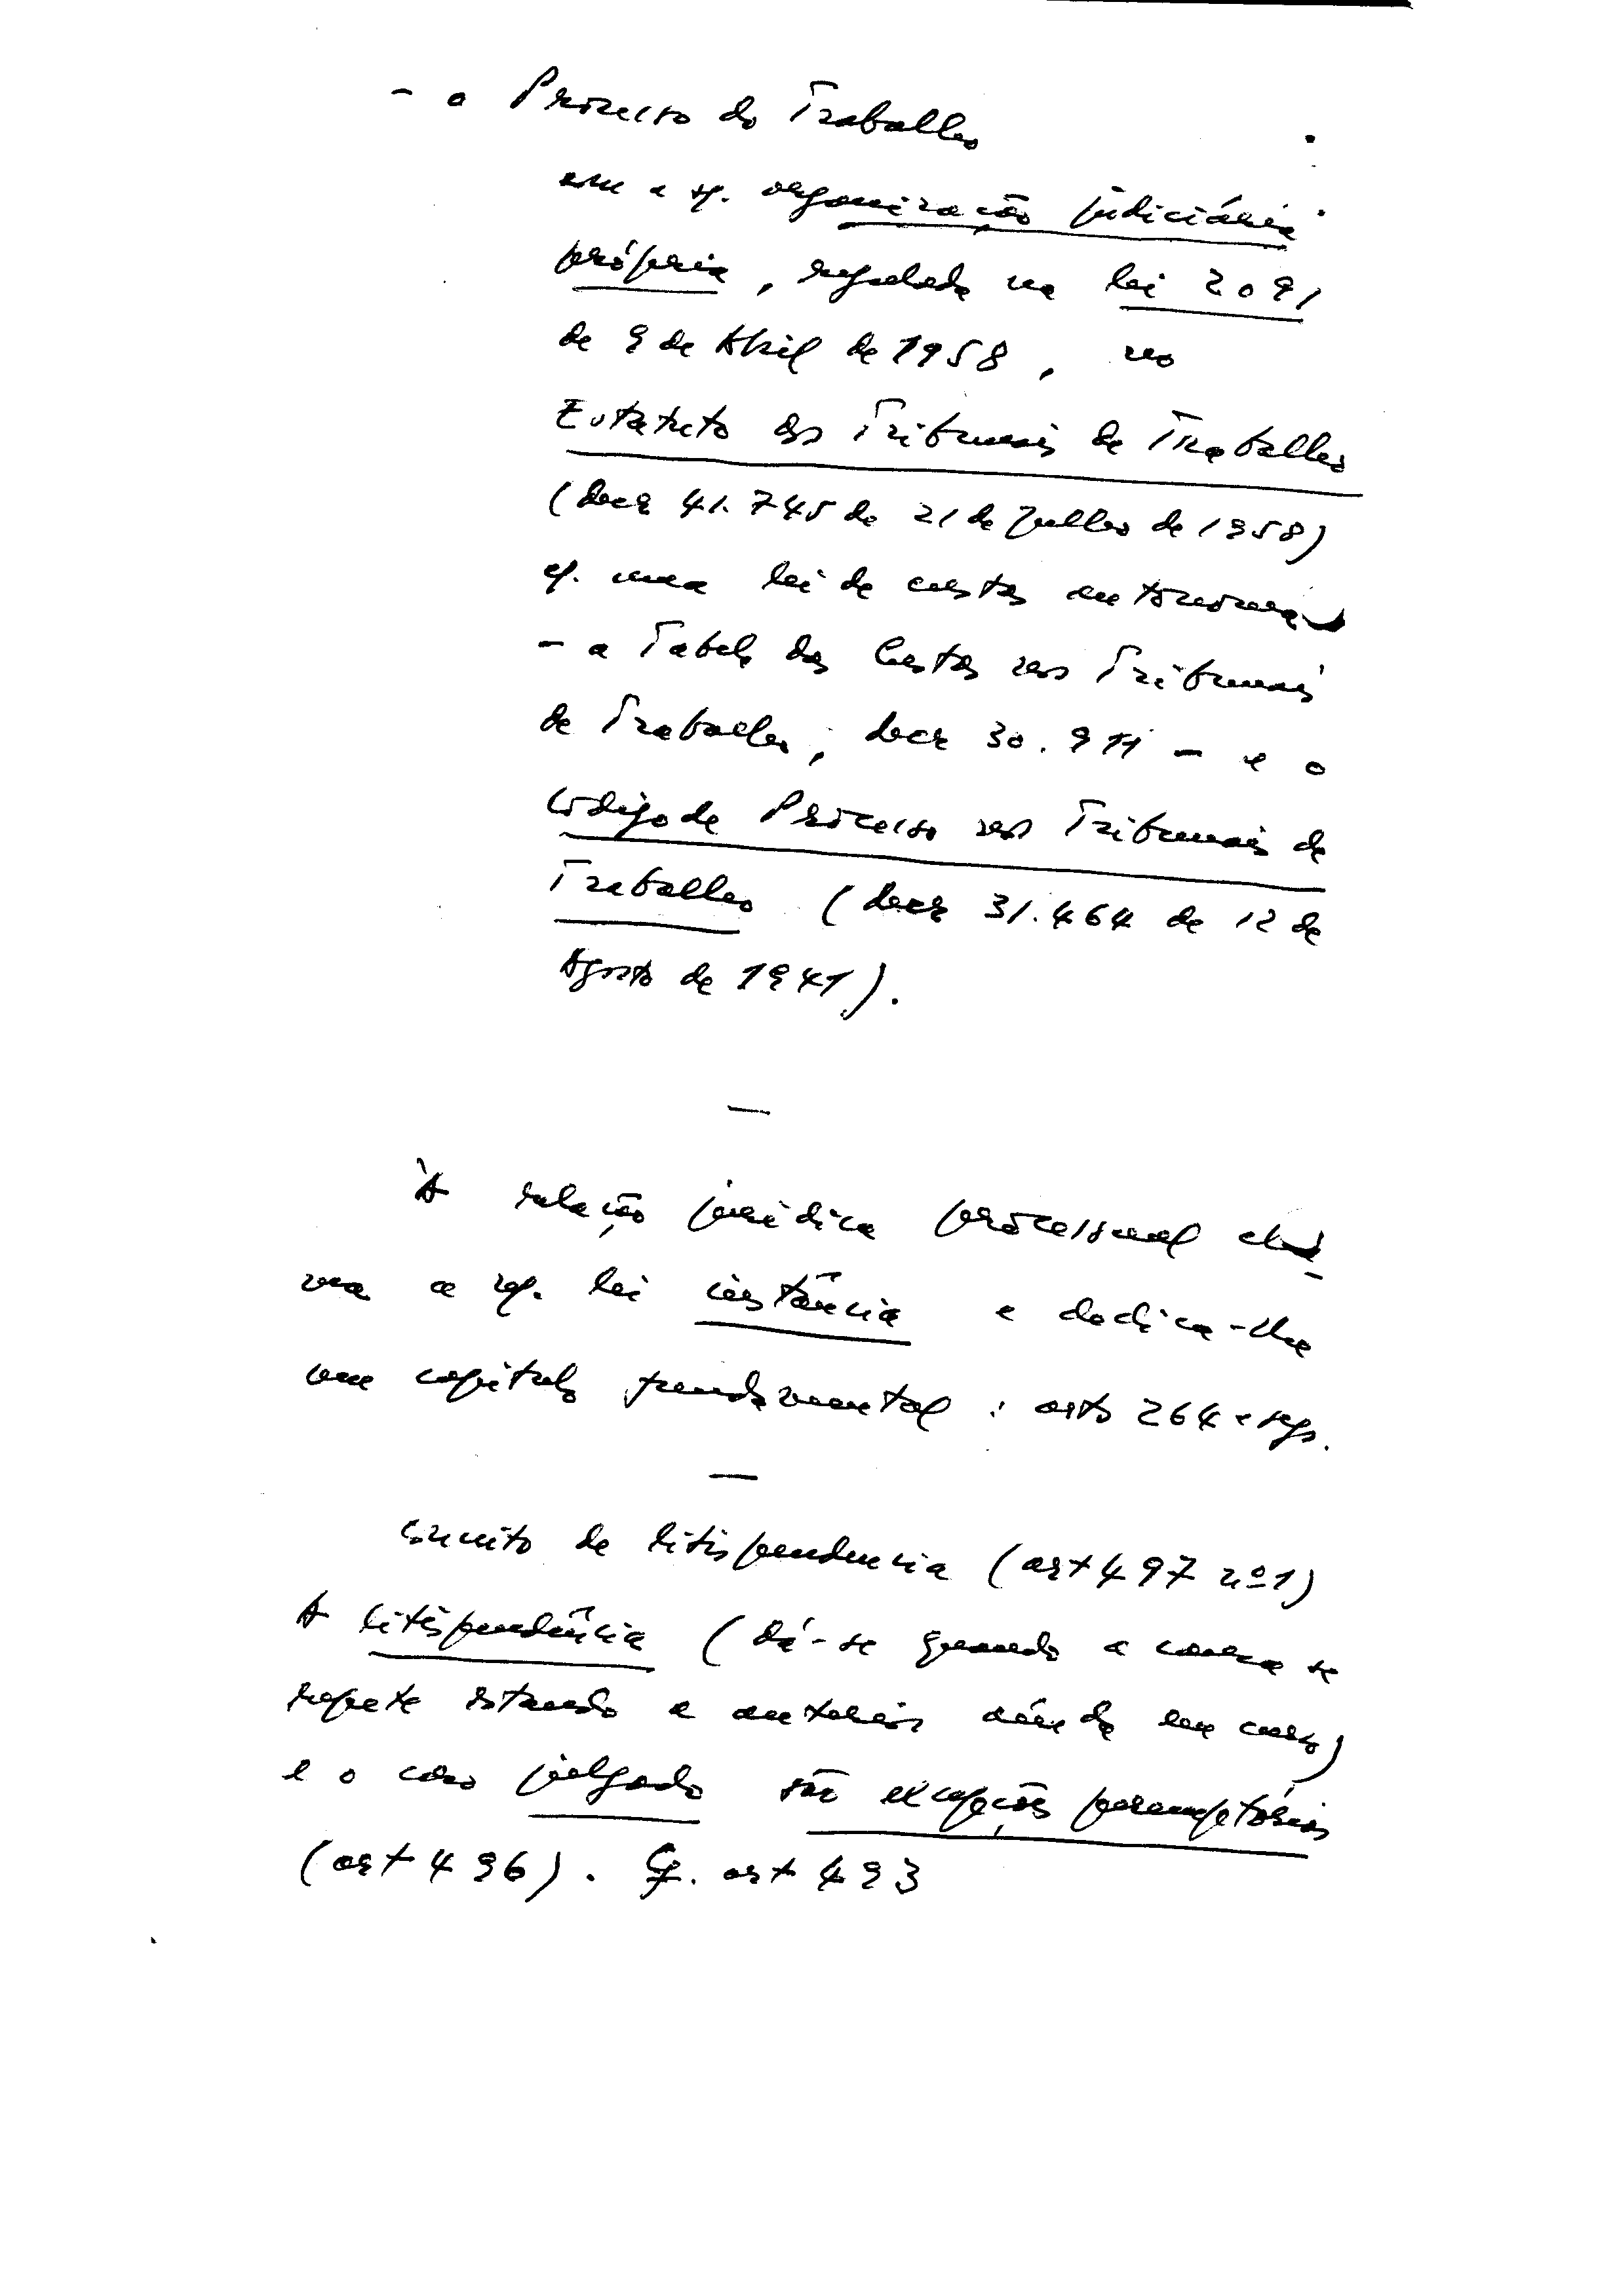 - o Processo do Trabalho
com a sp. organização judiciária
própria, regulada na lei 2091
de 9 de Abril de 1958, no
Estatuto dos Tribunais de Trabalho
(decr 41.745 de 21 de Julho de 1958)
uma lei de custas autonoma
- a Tabela das Custas nos Tribunais
de Trabalho, decr 30.911 - e o
Código de Processo nos Tribunais de
Trabalho (decr 31.464 de 12 de
Agosto de 1941).
À relação jurídica processual cha-
ma a lei instância e dedica-lhe
um capítulo fundamental: arts 264 e segs.
Conceito de litispendencia (art 497 nº 1)
A litispendência (dá-se quando a causa se
repete estando a anterior ainda em curso)
e o caso julgado são excepções peremptórias
(art 496). Cf. art 493